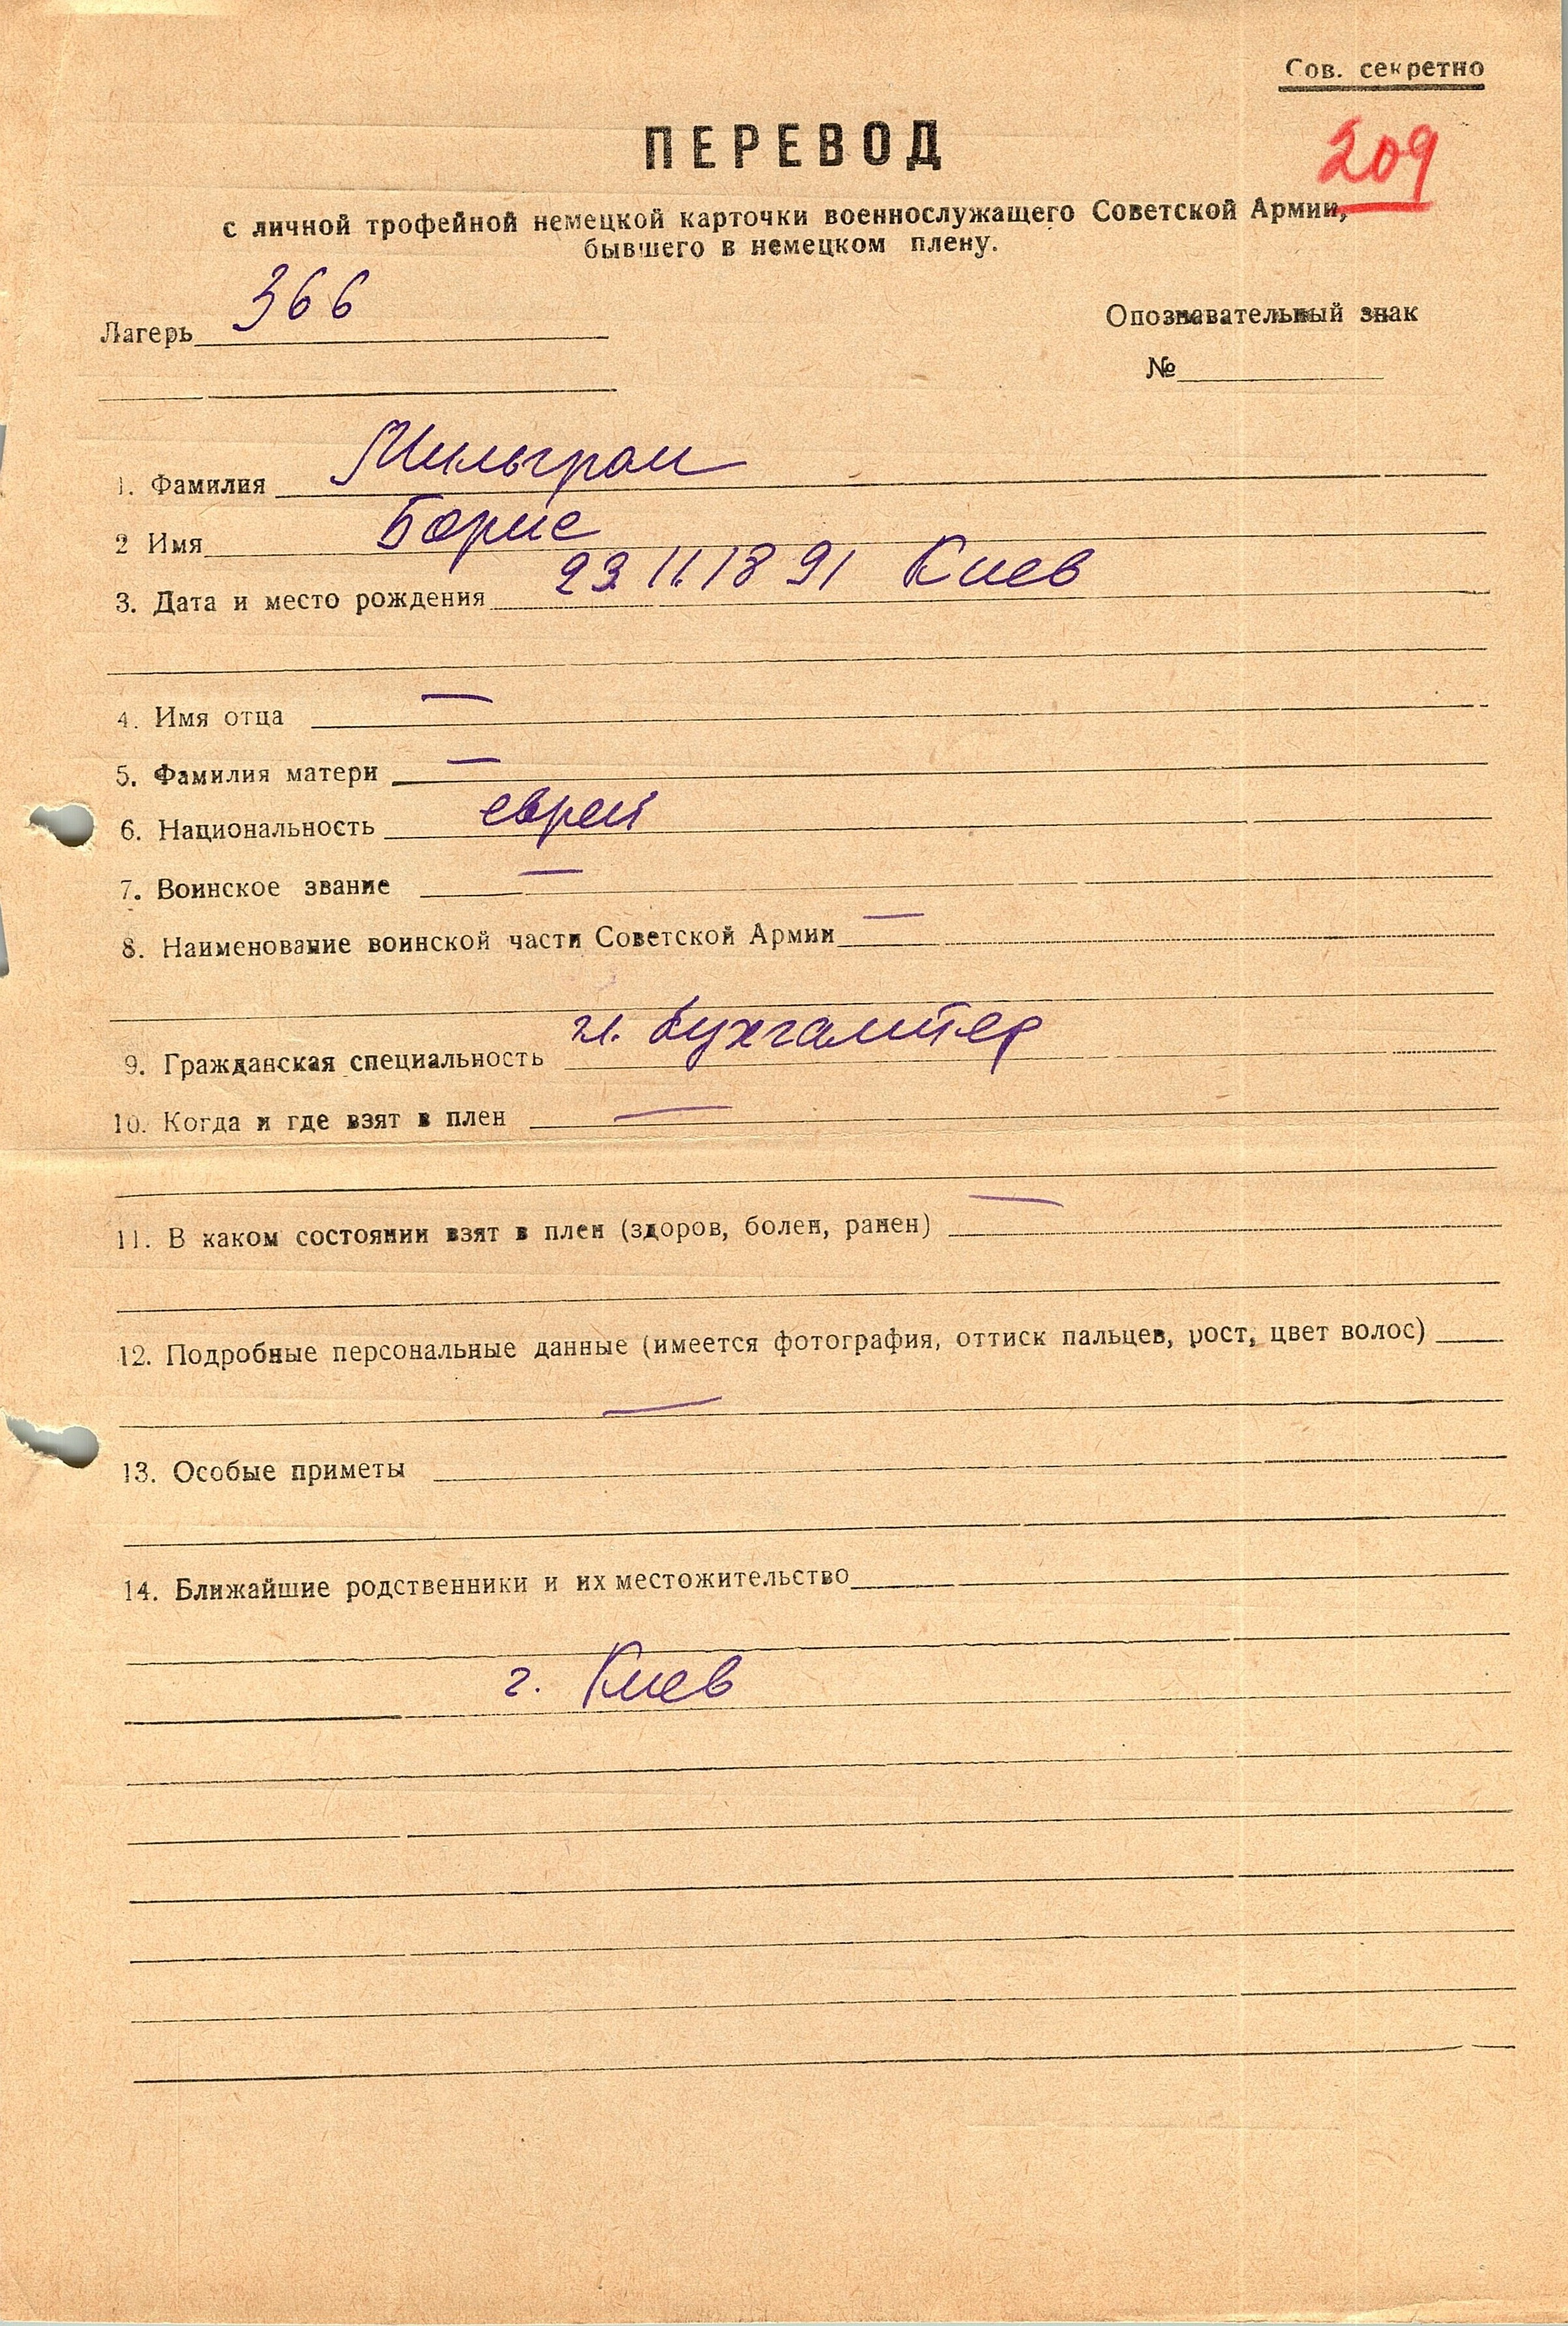 Сов. секретно
209
ПЕРЕВОД
с личной трофейной немецкой карточки военнослужащего Советской Армии,
бывшего в немецком плену.
Лагерь 366
Опознавательный знак
№
1. Фамилия Мильгром
2 Имя Борис
3. Дата и место рождения 23.11.1891 Киев
4. Имя отца —
5. Фамилия матери —
6. Национальность еврей
7. Воинское звание —
8. Наименование воинской части Советской Армии —
9. Гражданская специальность гл. бухгалтер
10. Когда и где взят в плен —
11. В каком состоянии взят в плен (здоров, болен, ранен) —
12. Подробные персональные данные (имеется фотография, оттиск пальцев, рост, цвет волос)
—
13. Особые приметы
14. Ближайшие родственники и их местожительство
г. Киев